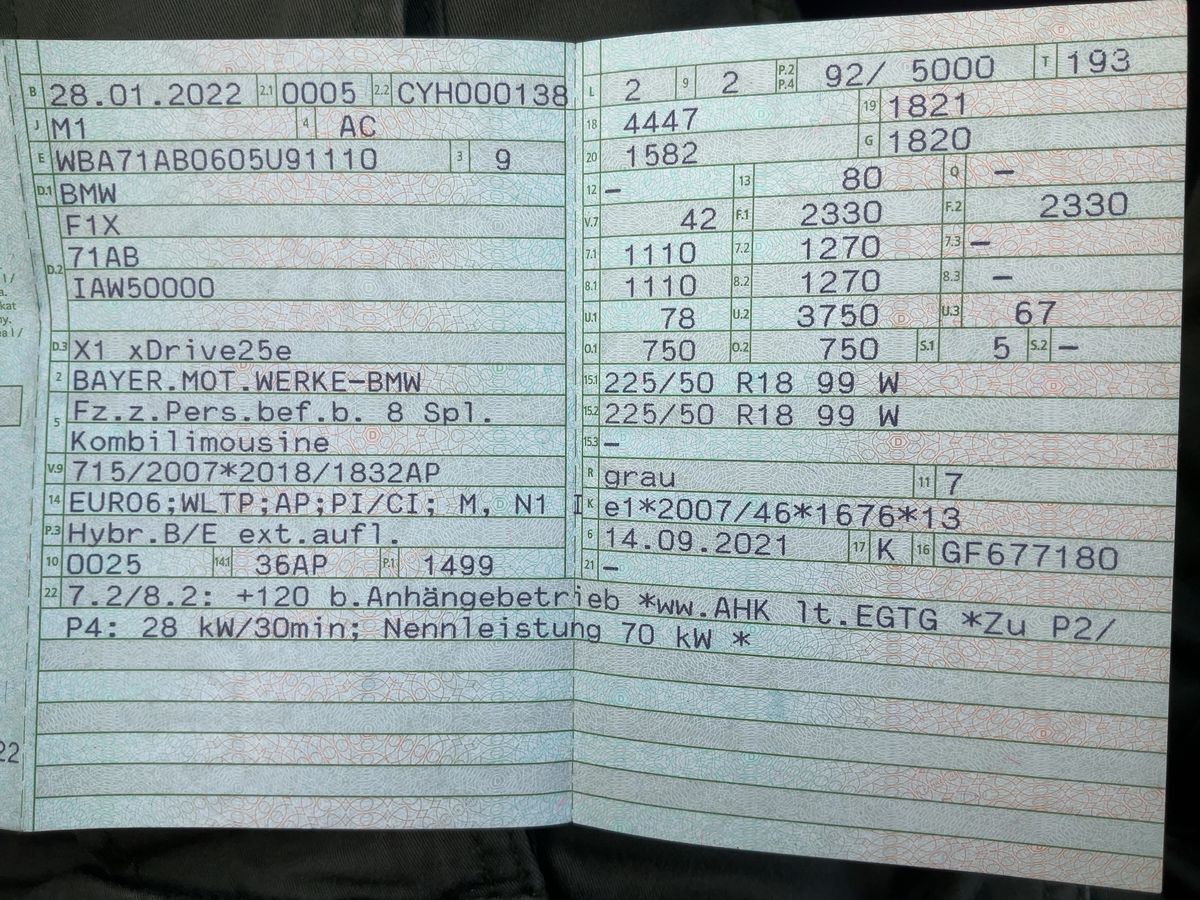 B 28.01.2022 2.1 0005 2.2 CYH000138
J M1 4 AC
E WBA71AB0605U91110 3 9
D.1 BMW
F1X
D.2 71AB
IAW50000
D.3 X1 xDrive25e
2 BAYER.MOT.WERKE-BMW
5 Fz.z.Pers.bef.b. 8 Spl.
Kombilimousine
V.9 715/2007*2018/1832AP
14 EURO6;WLTP;AP;PI/CI; M, N1 I
P.3 Hybr.B/E ext.aufl.
10 0025 14.1 36AP P.1 1499
L 2 9 2 P.2 P.4 92/ 5000 T 193
18 4447 19 1821
20 1582 G 1820
12 – 13 80 Q –
V.7 42 F.1 2330 F.2 2330
7.1 1110 7.2 1270 7.3 –
8.1 1110 8.2 1270 8.3 –
U.1 78 U.2 3750 U.3 67
O.1 750 O.2 750 S.1 5 S.2 –
15.1 225/50 R18 99 W
15.2 225/50 R18 99 W
15.3 –
R grau 11 7
K e1*2007/46*1676*13
6 14.09.2021 17 K 16 GF677180
21 –
22 7.2/8.2: +120 b.Anhängebetrieb *ww.AHK lt.EGTG *Zu P2/
P4: 28 kW/30min; Nennleistung 70 kW *
22